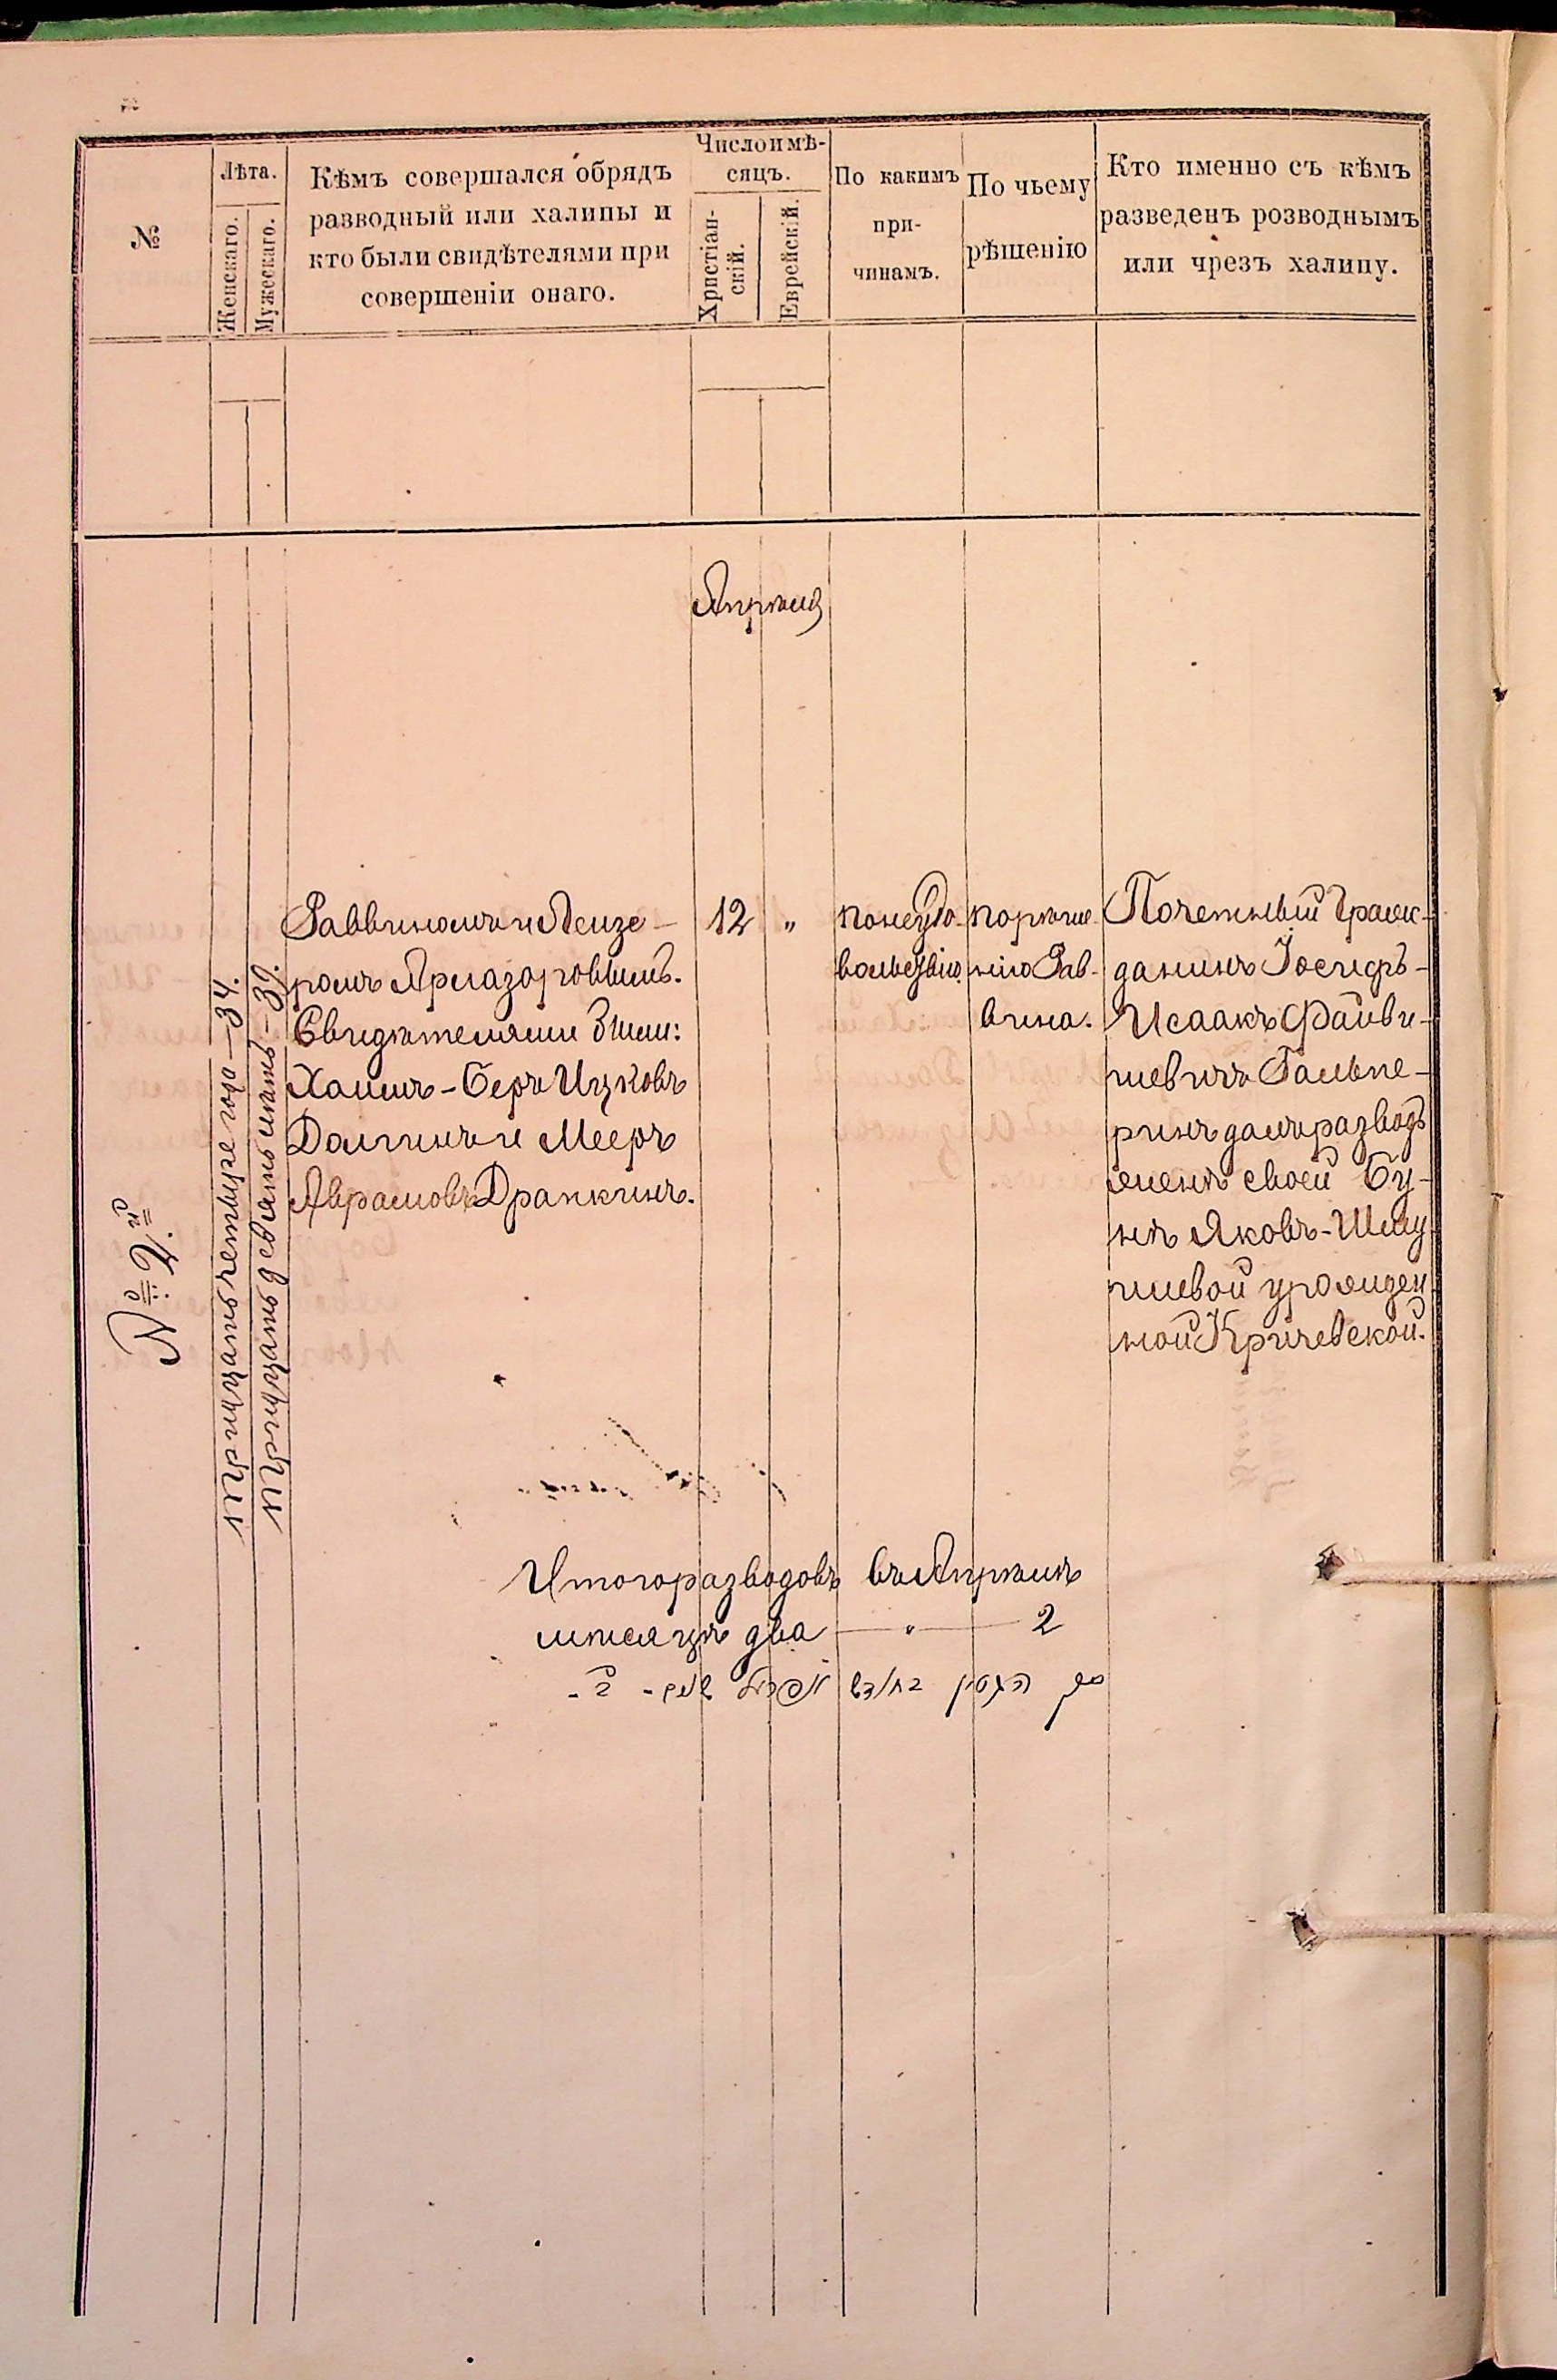 №
Лѣта.
Женскаго.
Мужескаго.
Кѣмъ совершался обрядъ
разводный или халицы и
кто были свидѣтелями при
совершеніи онаго.
Число и мѣ-
сяцъ.
Христіан-
скій.
Еврейскій.
По какимъ
при-
чинамъ.
По чьему
рѣшенію
Кто именно съ кѣмъ
разведенъ розводнымъ
или чрезъ халицу.
Апрѣля
№ 4.й
тридцать четыре года — 34.
тридцать девять лѣтъ — 39.
Раввиномъ
Свидѣтелями были:
Хаимъ-Беръ Ицковъ
Долгинъ и Мееръ
Аврамовъ Драпкинъ.
12 "
по неудо-
вольствію.
по рѣше-
нію Рав-
вина.
Почетный Граж-
данинъ Іосифъ-
Исаакъ Файви-
шевичъ Гальпе-
ринъ далъ разводъ
женѣ своей Бу-
нѣ Яковъ-Шму
илевой урожден
ной Кричевской.
Итого разводовъ въ Апрѣлѣ
мѣсяцѣ два — " — 2
סך הגטין בחודש אפריל שנים - ב -